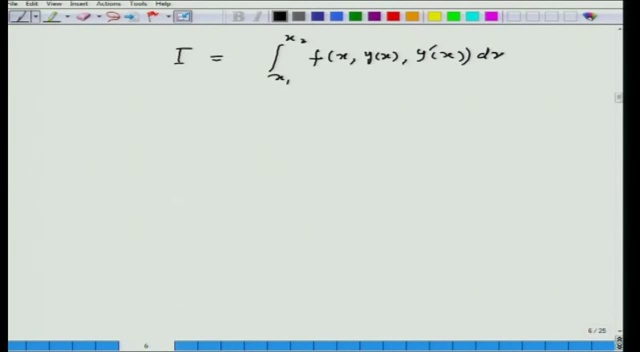 File Edit View Insert Actions Tools Help
I = ∫_{x₁}^{x₂} f(x, y(x), y'(x)) dx
6 / 25
6